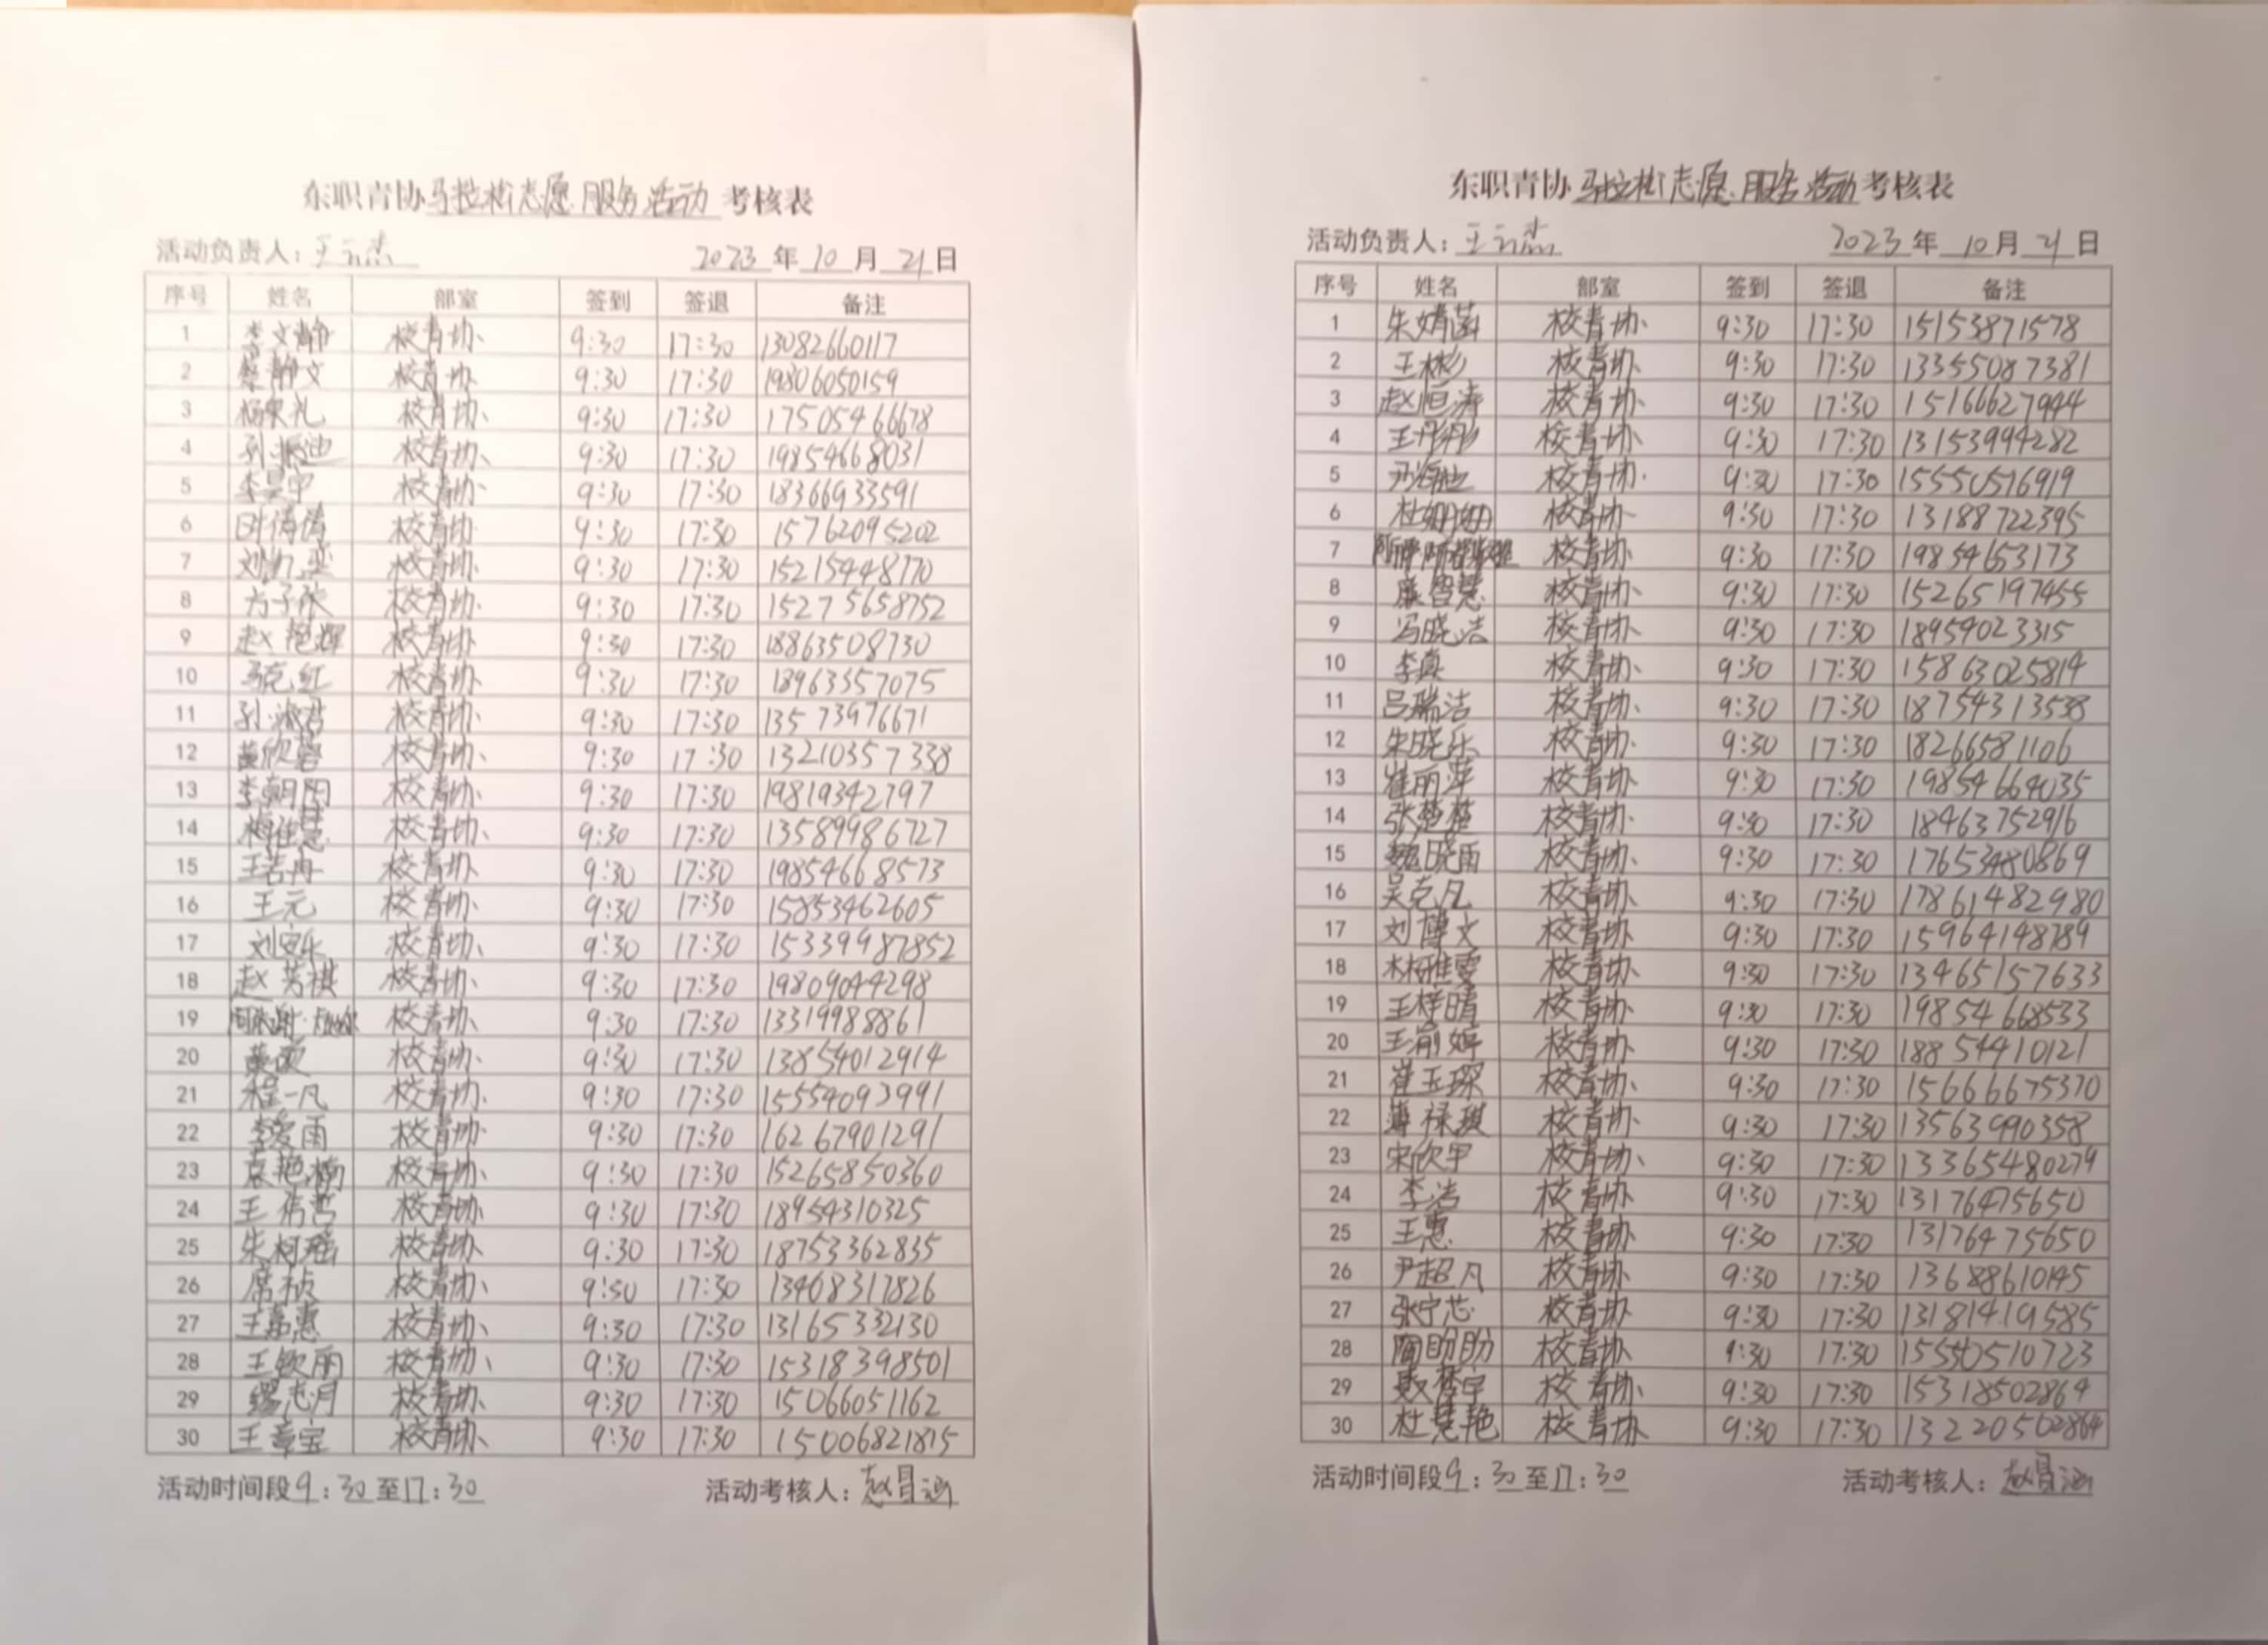 东职青协马拉松志愿服务活动考核表
活动负责人：王
2023年10月21日
序号 姓名 部室 签到 签退 备注
1 李文静 校青协 9:30 17:30 13082660117
2 蔡静文 校青协 9:30 17:30 19806050159
3 杨泉礼 校青协 9:30 17:30 17505466678
4 孙振迪 校青协 9:30 17:30 19854668031
5 李昊宇 校青协 9:30 17:30 18366933591
6 时倩倩 校青协 9:30 17:30 15762095202
7 校青协 9:30 17:30 15215448770
8 方子依 校青协 9:30 17:30 15275658752
9 赵艳辉 校青协 9:30 17:30 18863508730
10 马克红 校青协 9:30 17:30 18963357075
11 孙淑君 校青协 9:30 17:30 13573976671
12 黄欣蓉 校青协 9:30 17:30 13210357338
13 李朝阳 校青协 9:30 17:30 19819342797
14 梅雅慧 校青协 9:30 17:30 13589986727
15 王若冉 校青协 9:30 17:30 19854668573
16 王元 校青协 9:30 17:30 15853462605
17 刘安乐 校青协 9:30 17:30 15339987852
18 赵芳祺 校青协 9:30 17:30 19809044298
19 校青协 9:30 17:30 13319988861
20 校青协 9:30 17:30 13854012914
21 程一凡 校青协 9:30 17:30 15554093991
22 李爱雨 校青协 9:30 17:30 16267901291
23 袁艳楠 校青协 9:30 17:30 15265850360
24 王伟哲 校青协 9:30 17:30 18954310325
25 朱柯瑶 校青协 9:30 17:30 18753362835
26 席祯 校青协 9:50 17:30 13468317826
27 王嘉惠 校青协 9:30 17:30 13165332130
28 王钦丽 校青协 9:30 17:30 15318398501
29 缪志月 校青协 9:30 17:30 15066051162
30 王章宝 校青协 9:30 17:30 15006821815
活动时间段9：30至17：30
活动考核人：赵昌涵
东职青协马拉松志愿服务活动考核表
活动负责人：王
2023年10月21日
序号 姓名 部室 签到 签退 备注
1 朱婧菡 校青协 9:30 17:30 15153871578
2 王彬 校青协 9:30 17:30 13355087381
3 赵恒涛 校青协 9:30 17:30 15166627944
4 王彤彤 校青协 9:30 17:30 13153994282
5 校青协 9:30 17:30 15550516919
6 杜姗姗 校青协 9:30 17:30 13188722395
7 校青协 9:30 17:30 19854653173
8 康智慧 校青协 9:30 17:30 15265197455
9 冯晓洁 校青协 9:30 17:30 18959023315
10 李真 校青协 9:30 17:30 15863025814
11 吕瑞洁 校青协 9:30 17:30 18754313538
12 朱晓乐 校青协 9:30 17:30 18266581106
13 崔丽萍 校青协 9:30 17:30 19854664035
14 张楚楚 校青协 9:30 17:30 18463752916
15 魏晓雨 校青协 9:30 17:30 17653480869
16 吴克凡 校青协 9:30 17:30 17861482980
17 刘博文 校青协 9:30 17:30 15964148789
18 林雅雯 校青协 9:30 17:30 13465157633
19 王梓晴 校青协 9:30 17:30 19854668533
20 王俞婷 校青协 9:30 17:30 18854410121
21 崔玉琛 校青协 9:30 17:30 15666675370
22 薄禄琪 校青协 9:30 17:30 13563990358
23 宋欣宇 校青协 9:30 17:30 13365480279
24 李浩 校青协 9:30 17:30 13176475650
25 王惠 校青协 9:30 17:30 13176475650
26 尹超凡 校青协 9:30 17:30 13688610145
27 张宁芯 校青协 9:30 17:30 13181419585
28 陶盼盼 校青协 9:30 17:30 15540510723
29 校青协 9:30 17:30 15318502864
30 杜慧艳 校青协 9:30 17:30 13220502864
活动时间段9：30至17：30
活动考核人：赵昌涵